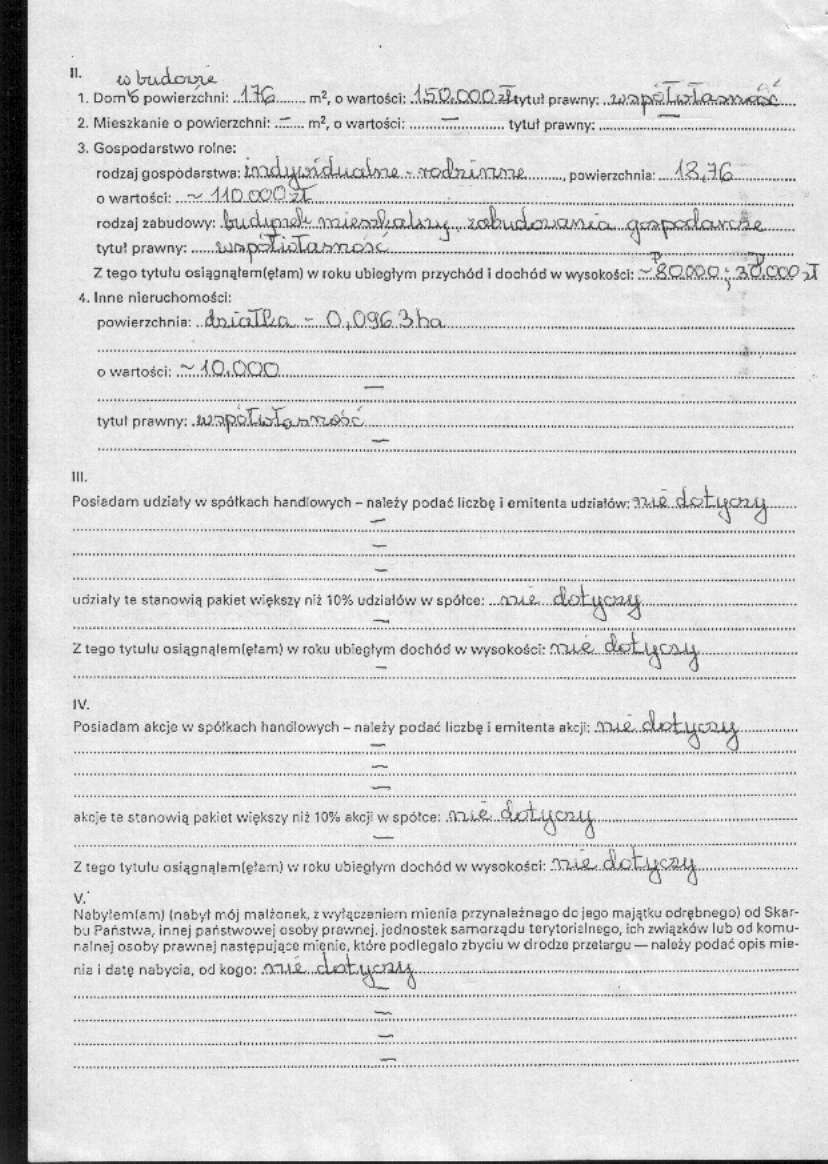 II.
w budowie
1. Dom o powierzchni: 176 m², o wartości: 150.000 zł tytuł prawny: współwłasność
2. Mieszkanie o powierzchni: — m², o wartości: — tytuł prawny: —
3. Gospodarstwo rolne:
rodzaj gospodarstwa: indywidualne - rodzinne, powierzchnia: 13,76
o wartości: ~ 110.000 zł
rodzaj zabudowy: budynek mieszkalny, zabudowania gospodarcze
tytuł prawny: współwłasność
Z tego tytułu osiągnąłem(ęłam) w roku ubiegłym przychód i dochód w wysokości: ~ P 80.000; D 30.000 zł
4. Inne nieruchomości:
powierzchnia: działka - 0,0963 ha
o wartości: ~ 10.000
—
tytuł prawny: współwłasność
—
III.
Posiadam udziały w spółkach handlowych – należy podać liczbę i emitenta udziałów: nie dotyczy
—
—
—
udziały te stanowią pakiet większy niż 10% udziałów w spółce: nie dotyczy
—
Z tego tytułu osiągnąłem(ęłam) w roku ubiegłym dochód w wysokości: nie dotyczy
—
IV.
Posiadam akcje w spółkach handlowych – należy podać liczbę i emitenta akcji: nie dotyczy
—
—
—
akcje te stanowią pakiet większy niż 10% akcji w spółce: nie dotyczy
—
Z tego tytułu osiągnąłem(ęłam) w roku ubiegłym dochód w wysokości: nie dotyczy
V.
Nabyłem(am) (nabył mój małżonek, z wyłączeniem mienia przynależnego do jego majątku odrębnego) od Skar-
bu Państwa, innej państwowej osoby prawnej, jednostek samorządu terytorialnego, ich związków lub od komu-
nalnej osoby prawnej następujące mienie, które podlegało zbyciu w drodze przetargu — należy podać opis mie-
nia i datę nabycia, od kogo: nie dotyczy
—
—
—
—